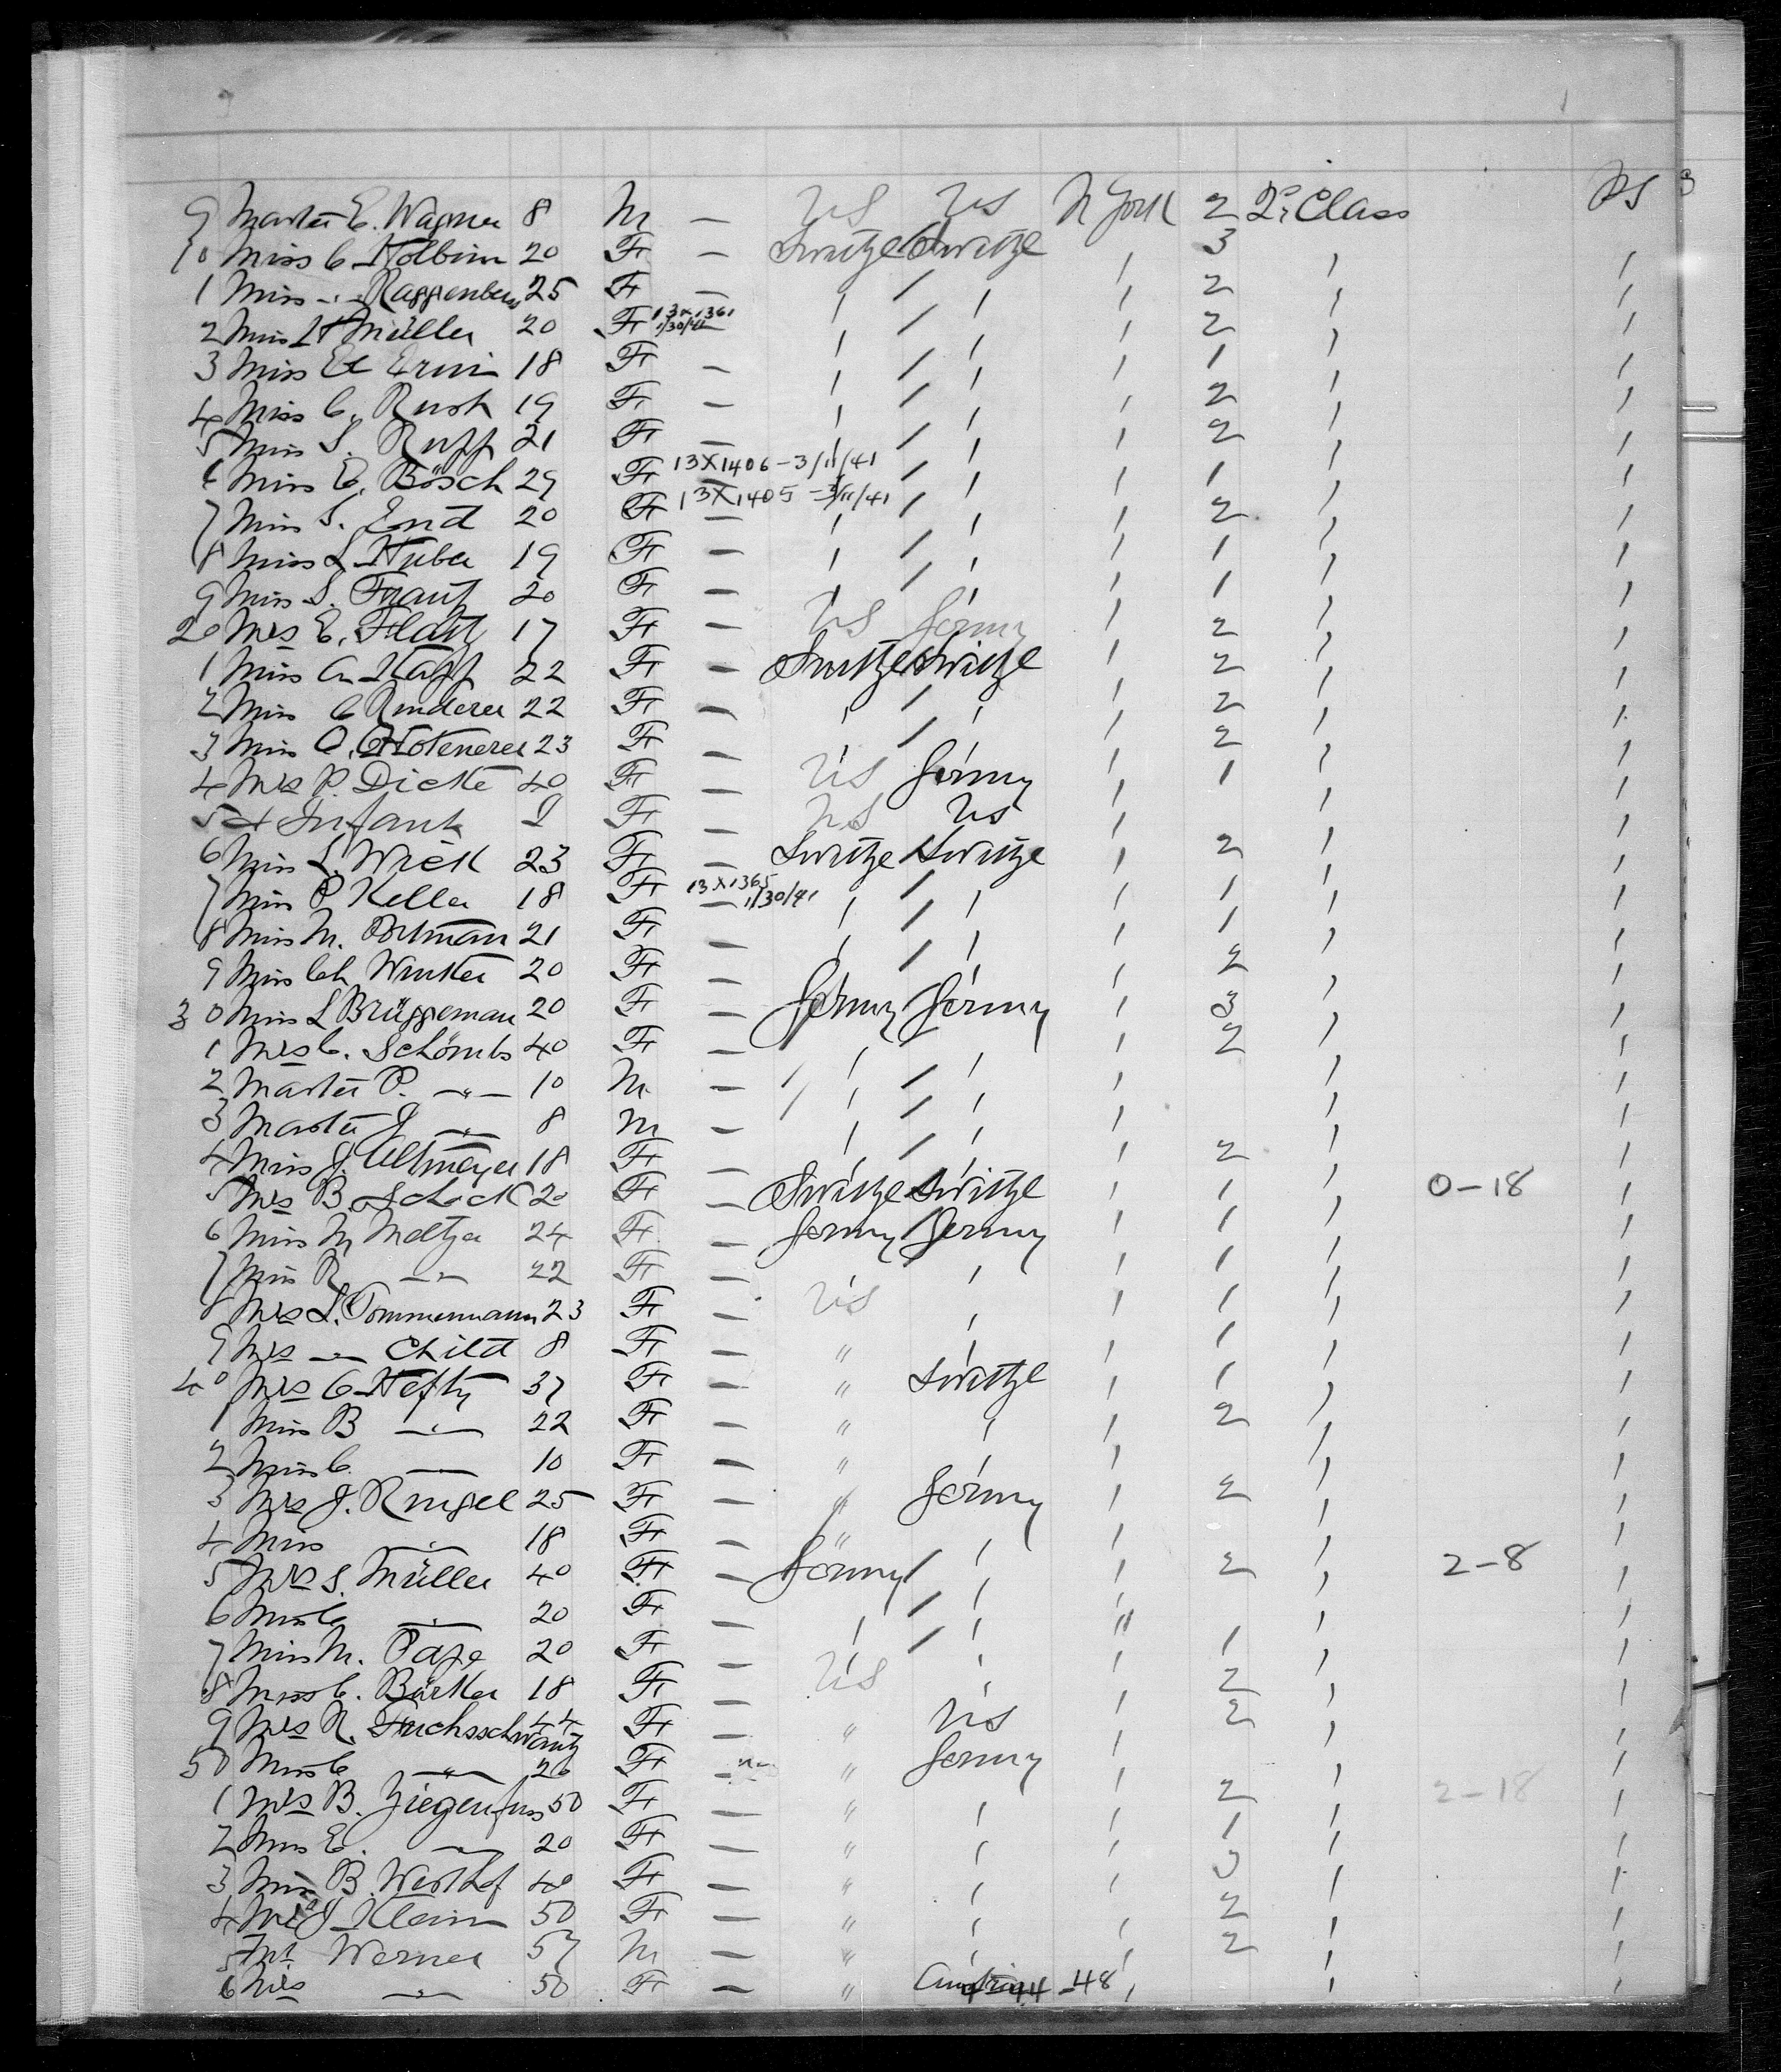 9 Master E. Wagner 8 M — US US N York 2 2nd Class
10 Miss C. Holbein 20 F — Switze Switze 3
1 Miss Raggenbass 25 F — 2
2 Miss H Müller 20 F 13x1361 1/30/41 2
3 Miss El Erni 18 F — 1
4 Miss C. Rush 19 F — 2
5 Miss S. Rupp 21 F — 2
6 Miss E. Bösch 29 F 13X1406 - 3/11/41 1
7 Miss S. End 20 F 13X1405 - 3/11/41 2
8 Miss L. Huber 19 F — 1
9 Miss S. Frautz 20 F — 1
20 Mrs E. Flatz 17 F — US Germy 2
1 Miss A. Kapp 22 F — Switze Switze 2
2 Miss C Rinderer 22 F — 2
3 Miss 23 F — 2
4 Mrs P. Dicke 40 F — US Germy 1
5 Infant F — US US
6 Miss L. Wick 23 F — Switze Switze 2
7 Miss P Keller 18 F 13X1365 1/30/41 1
8 Miss M. Portman 21 F — 1
9 Miss Ch Winkler 20 F — 2
30 Miss L Brüggeman 20 F — Germy Germy 3
1 Mrs C. Schömbs 40 F — 2
2 Master P. —"— 10 M —
3 Master J —"— 8 M —
4 Miss J. Altmeyer 18 F — 2
5 Mrs B. Schick 20 F — Switze Switze 1 0-18
6 Miss M Meltzer 24 F — Germy Germy 1
7 Miss R. —"— 22 F — 1
8 Mrs L. Tommermann 23 F — US 1
9 Mrs —"— Child 8 F — " 1
40 Mrs C Hefty 37 F — " Switze 1
1 Miss B —"— 22 F — " 2
2 Miss C. —"— 10 F — "
3 Mrs J. Ringel 25 F — " Germy 2
4 Miss —"— 18 F — "
5 Mrs S. Müller 40 F — Germy 2 2-8
6 Miss C —"— 20 F — "
7 Miss M. Pape 20 F — 1
8 Miss C. Bärker 18 F — US 2
9 Mrs R. Fuchsschwantz 44 F — " US 2
50 Miss C —"— 26 F — " Germy
1 Mrs B. Ziegenfuss 50 F — " 2 2-18
2 Miss E. —"— 20 F — " 1
3 Miss B. Westhof 40 F — " 3
4 Mrs J Klein 50 F — " 2
5 Mr Werner 57 M — " 2
6 Mrs —"— 50 F — " Austria -48